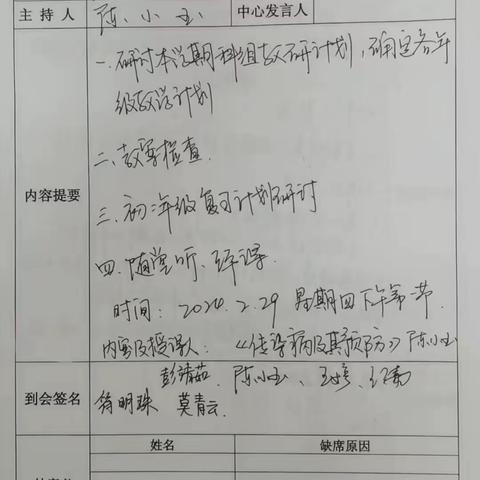 主持人 陈小玉 中心发言人
一.研讨本学期科组教研计划,确定各年
级教学计划
二、教案检查.
内容提要
三.初二年级复习计划研讨
四.随堂听、评课.
时间:2024.2.29 星期四下午第一节
内容及授课人:《传染病及其预防》陈小玉
彭靖茹、陈小玉、王婷、
到会签名
明珠 莫青云.
姓名 缺席原因